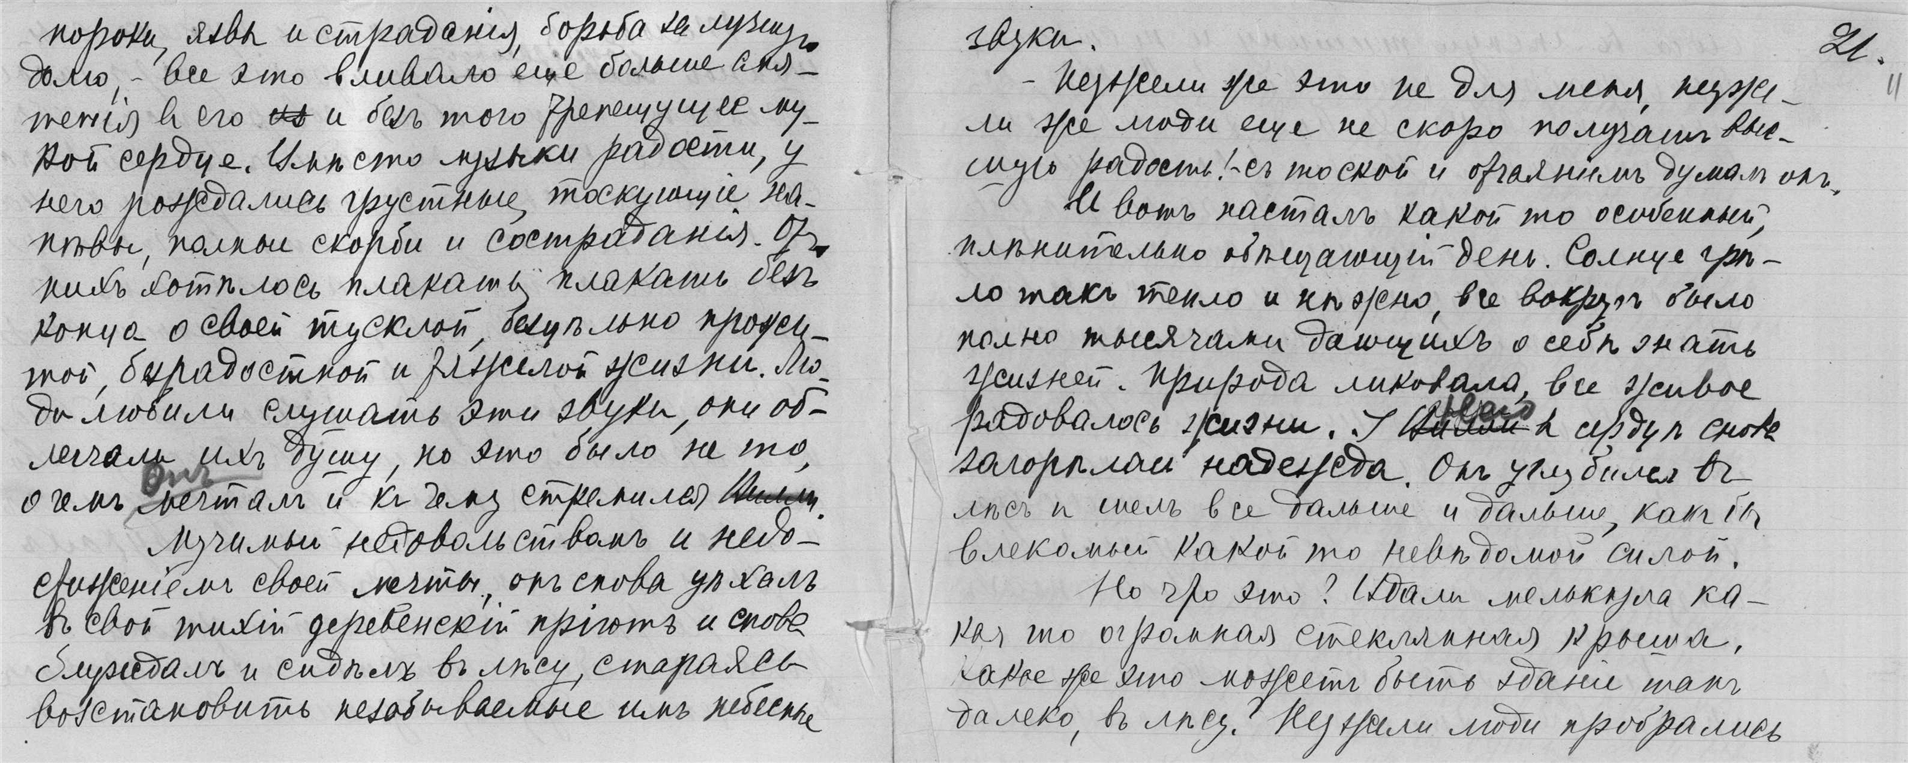 пороки, язвы и страданія, борьба за лучшую
долю, - все это вливало еще больше смя-
тенія в его и безъ того трепещущее му-
кой сердце. Вмѣсто музыки радости, у
него рождались грустные, тоскующіе на-
пѣвы, полные скорби и состраданія. Отъ
нихъ хотѣлось плакать, плакать безъ
конца о своей тусклой, безцѣльно прожи-
той, безрадостной и тяжелой жизни. Лю-
ди любили слушать эти звуки, они об-
легчали ихъ душу, но это было не то,
о чемъ онъ мечталъ и къ чему стремился.
Мучимый недовольствомъ и недо-
стиженіемъ своей мечты, онъ снова уѣхалъ
въ свой тихій деревенскій пріютъ и снова
блуждалъ и сидѣлъ въ лѣсу, стараясь
возстановить незабываемые имъ небесные
21.
11
звуки.
- Неужели же это не для меня, неуже-
ли же люди еще не скоро получатъ выс-
шую радость! - съ тоской и отчаяніемъ думалъ онъ.
И вотъ насталъ какой то особенный,
плѣнительно обѣщающій день. Солнце грѣ-
ло такъ тепло и нѣжно, все вокругъ было
полно тысячами дающихъ о себѣ знать
жизней. Природа ликовала, все живое
радовалось жизни. У него в сердцѣ снова
загорѣлась надежда. Онъ углубился въ
лѣсъ и шелъ все дальше и дальше, какъ бы
влекомый какой то невѣдомой силой.
Но что это? Вдали мелькнула ка-
кая то огромная стеклянная крыша.
Какое же это можетъ быть зданіе такъ
далеко, въ лѣсу? Неужели люди пробрались